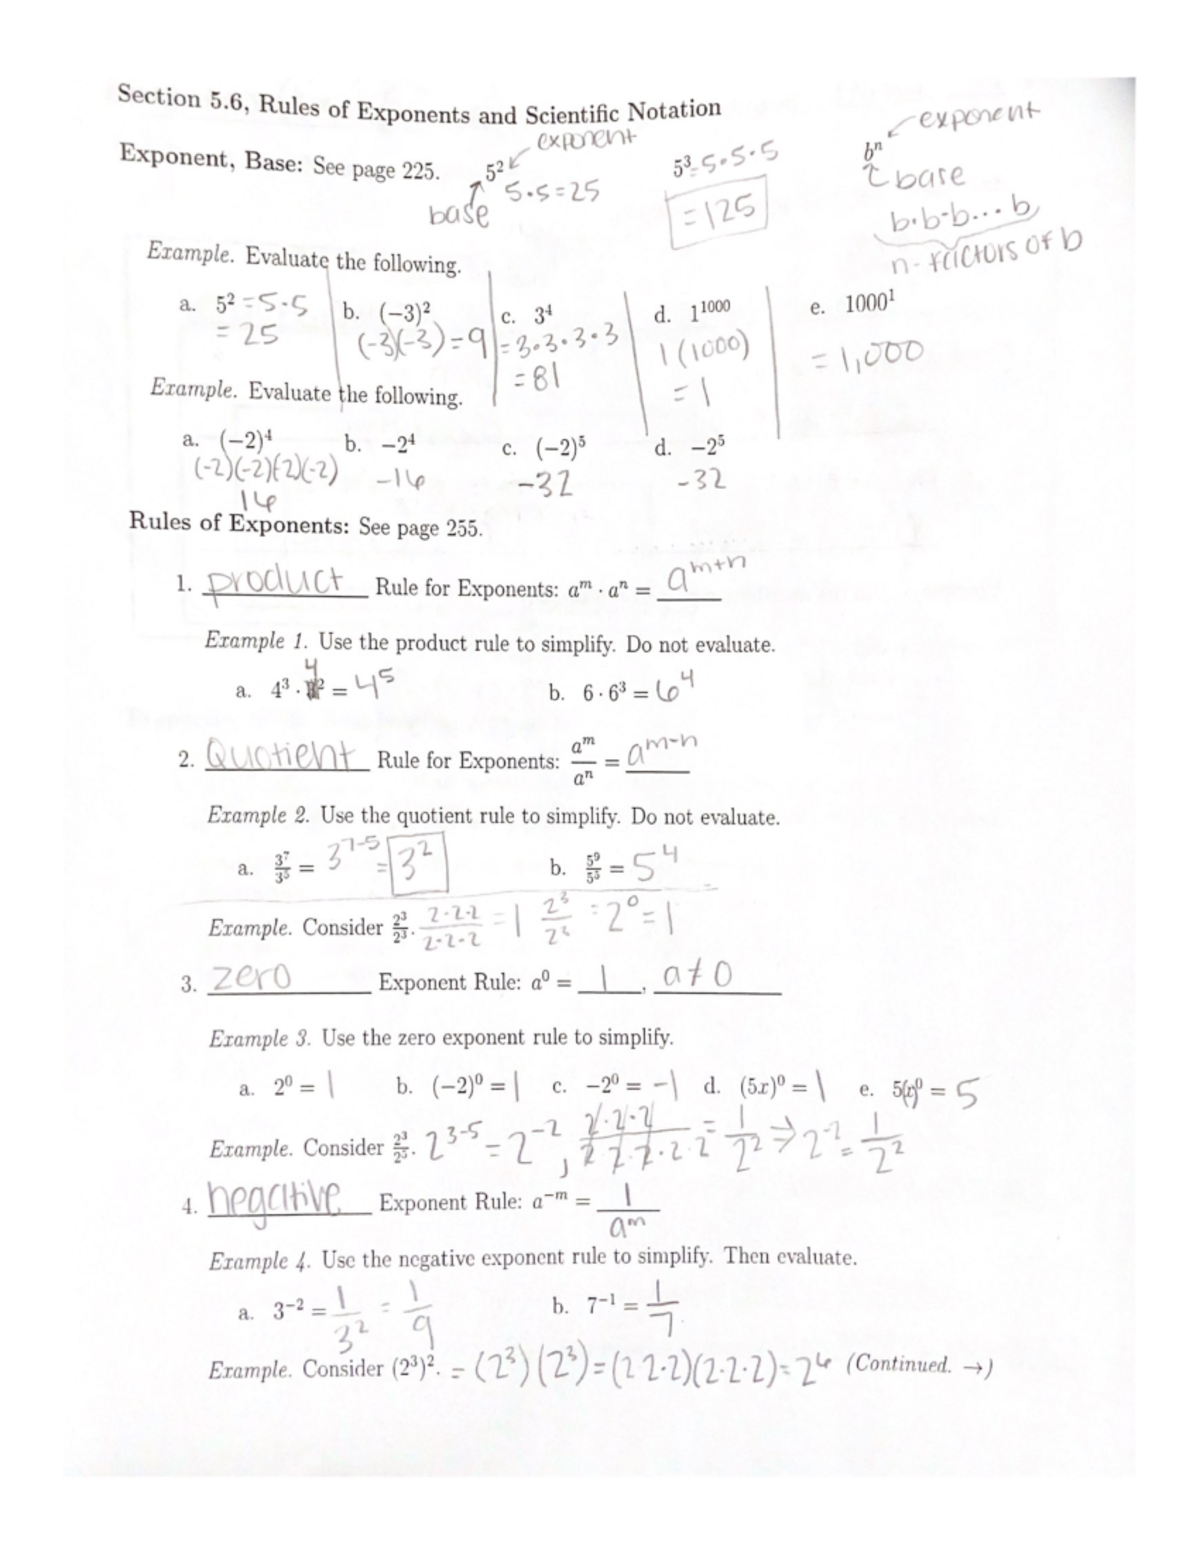 Section 5.6, Rules of Exponents and Scientific Notation
Exponent, Base: See page 225. 5² exponent 5³=5·5·5 bⁿ exponent
base 5·5=25 =125 base
b·b·b...b
n-factors of b
Example. Evaluate the following.
a. 5² =5·5 b. (−3)² c. 3⁴ d. 1¹⁰⁰⁰ e. 1000¹
=25 (-3)(-3)=9 =3·3·3·3 1(1000) =1,000
=81 =1
Example. Evaluate the following.
a. (−2)⁴ b. −2⁴ c. (−2)⁵ d. −2⁵
(-2)(-2)(-2)(-2) -16 -32 -32
16
Rules of Exponents: See page 255.
1. product Rule for Exponents: aᵐ · aⁿ = aᵐ⁺ⁿ
Example 1. Use the product rule to simplify. Do not evaluate.
a. 4³ · 4² = 4⁵ b. 6 · 6³ = 6⁴
2. Quotient Rule for Exponents: aᵐ/aⁿ = aᵐ⁻ⁿ
Example 2. Use the quotient rule to simplify. Do not evaluate.
a. 3⁷/3⁵ = 3⁷⁻⁵ = 3² b. 5⁹/5⁵ = 5⁴
Example. Consider 2³/2³. 2·2·2/2·2·2 = 1 2³/2³ = 2⁰ = 1
3. zero Exponent Rule: a⁰ = 1, a≠0
Example 3. Use the zero exponent rule to simplify.
a. 2⁰ = 1 b. (−2)⁰ = 1 c. −2⁰ = -1 d. (5x)⁰ = 1 e. 5(x)⁰ = 5
Example. Consider 2³/2⁵. 2³⁻⁵ = 2⁻², 2·2·2/2·2·2·2·2 = 1/2² ⇒ 2⁻² = 1/2²
4. negative Exponent Rule: a⁻ᵐ = 1/aᵐ
Example 4. Use the negative exponent rule to simplify. Then evaluate.
a. 3⁻² = 1/3² = 1/9 b. 7⁻¹ = 1/7
Example. Consider (2³)². = (2³)(2³)=(2·2·2)(2·2·2)=2⁶ (Continued. →)